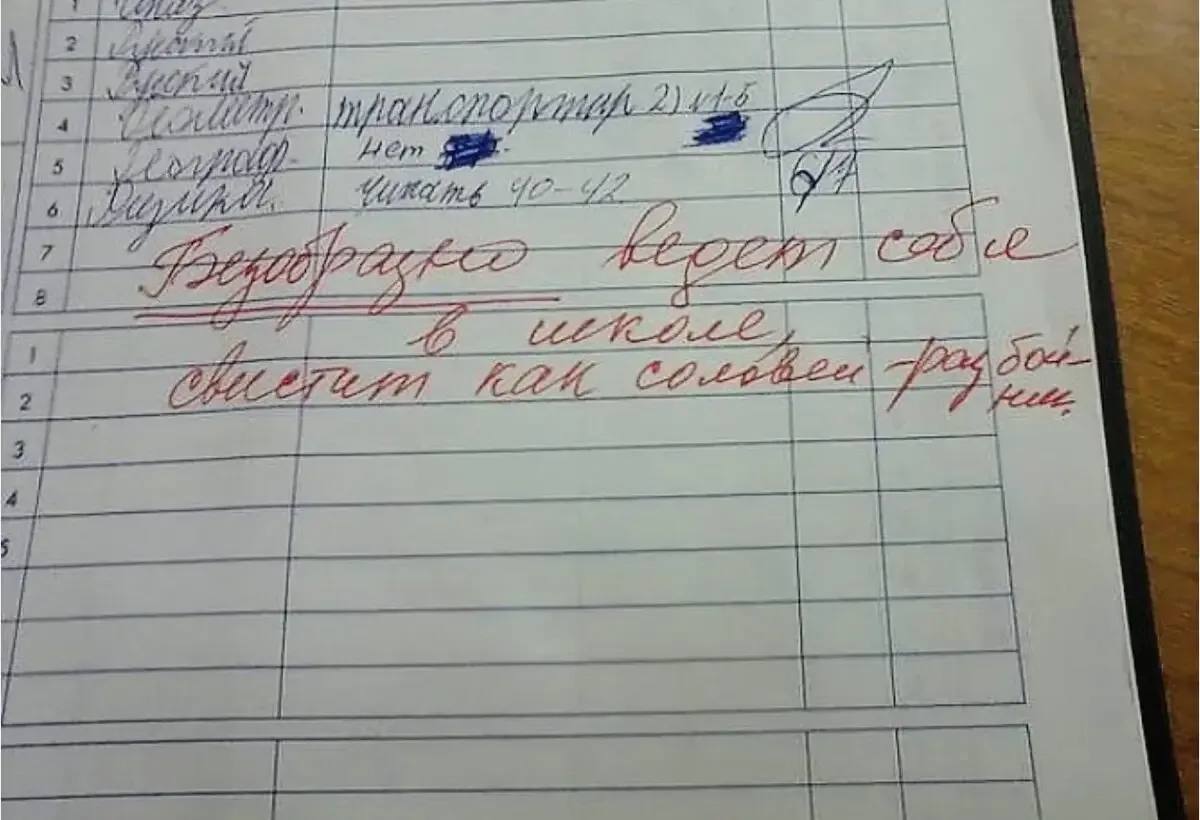 1
2 Русский
3 Русский
4 Геометр. транспортир 2) и1-5
5 Географ. нет
6 Физика. Читать 40-42
7 Безобразно ведет себя
8
1 в школе,
2 свистит как соловей-разбой-
ник.
3
4
5